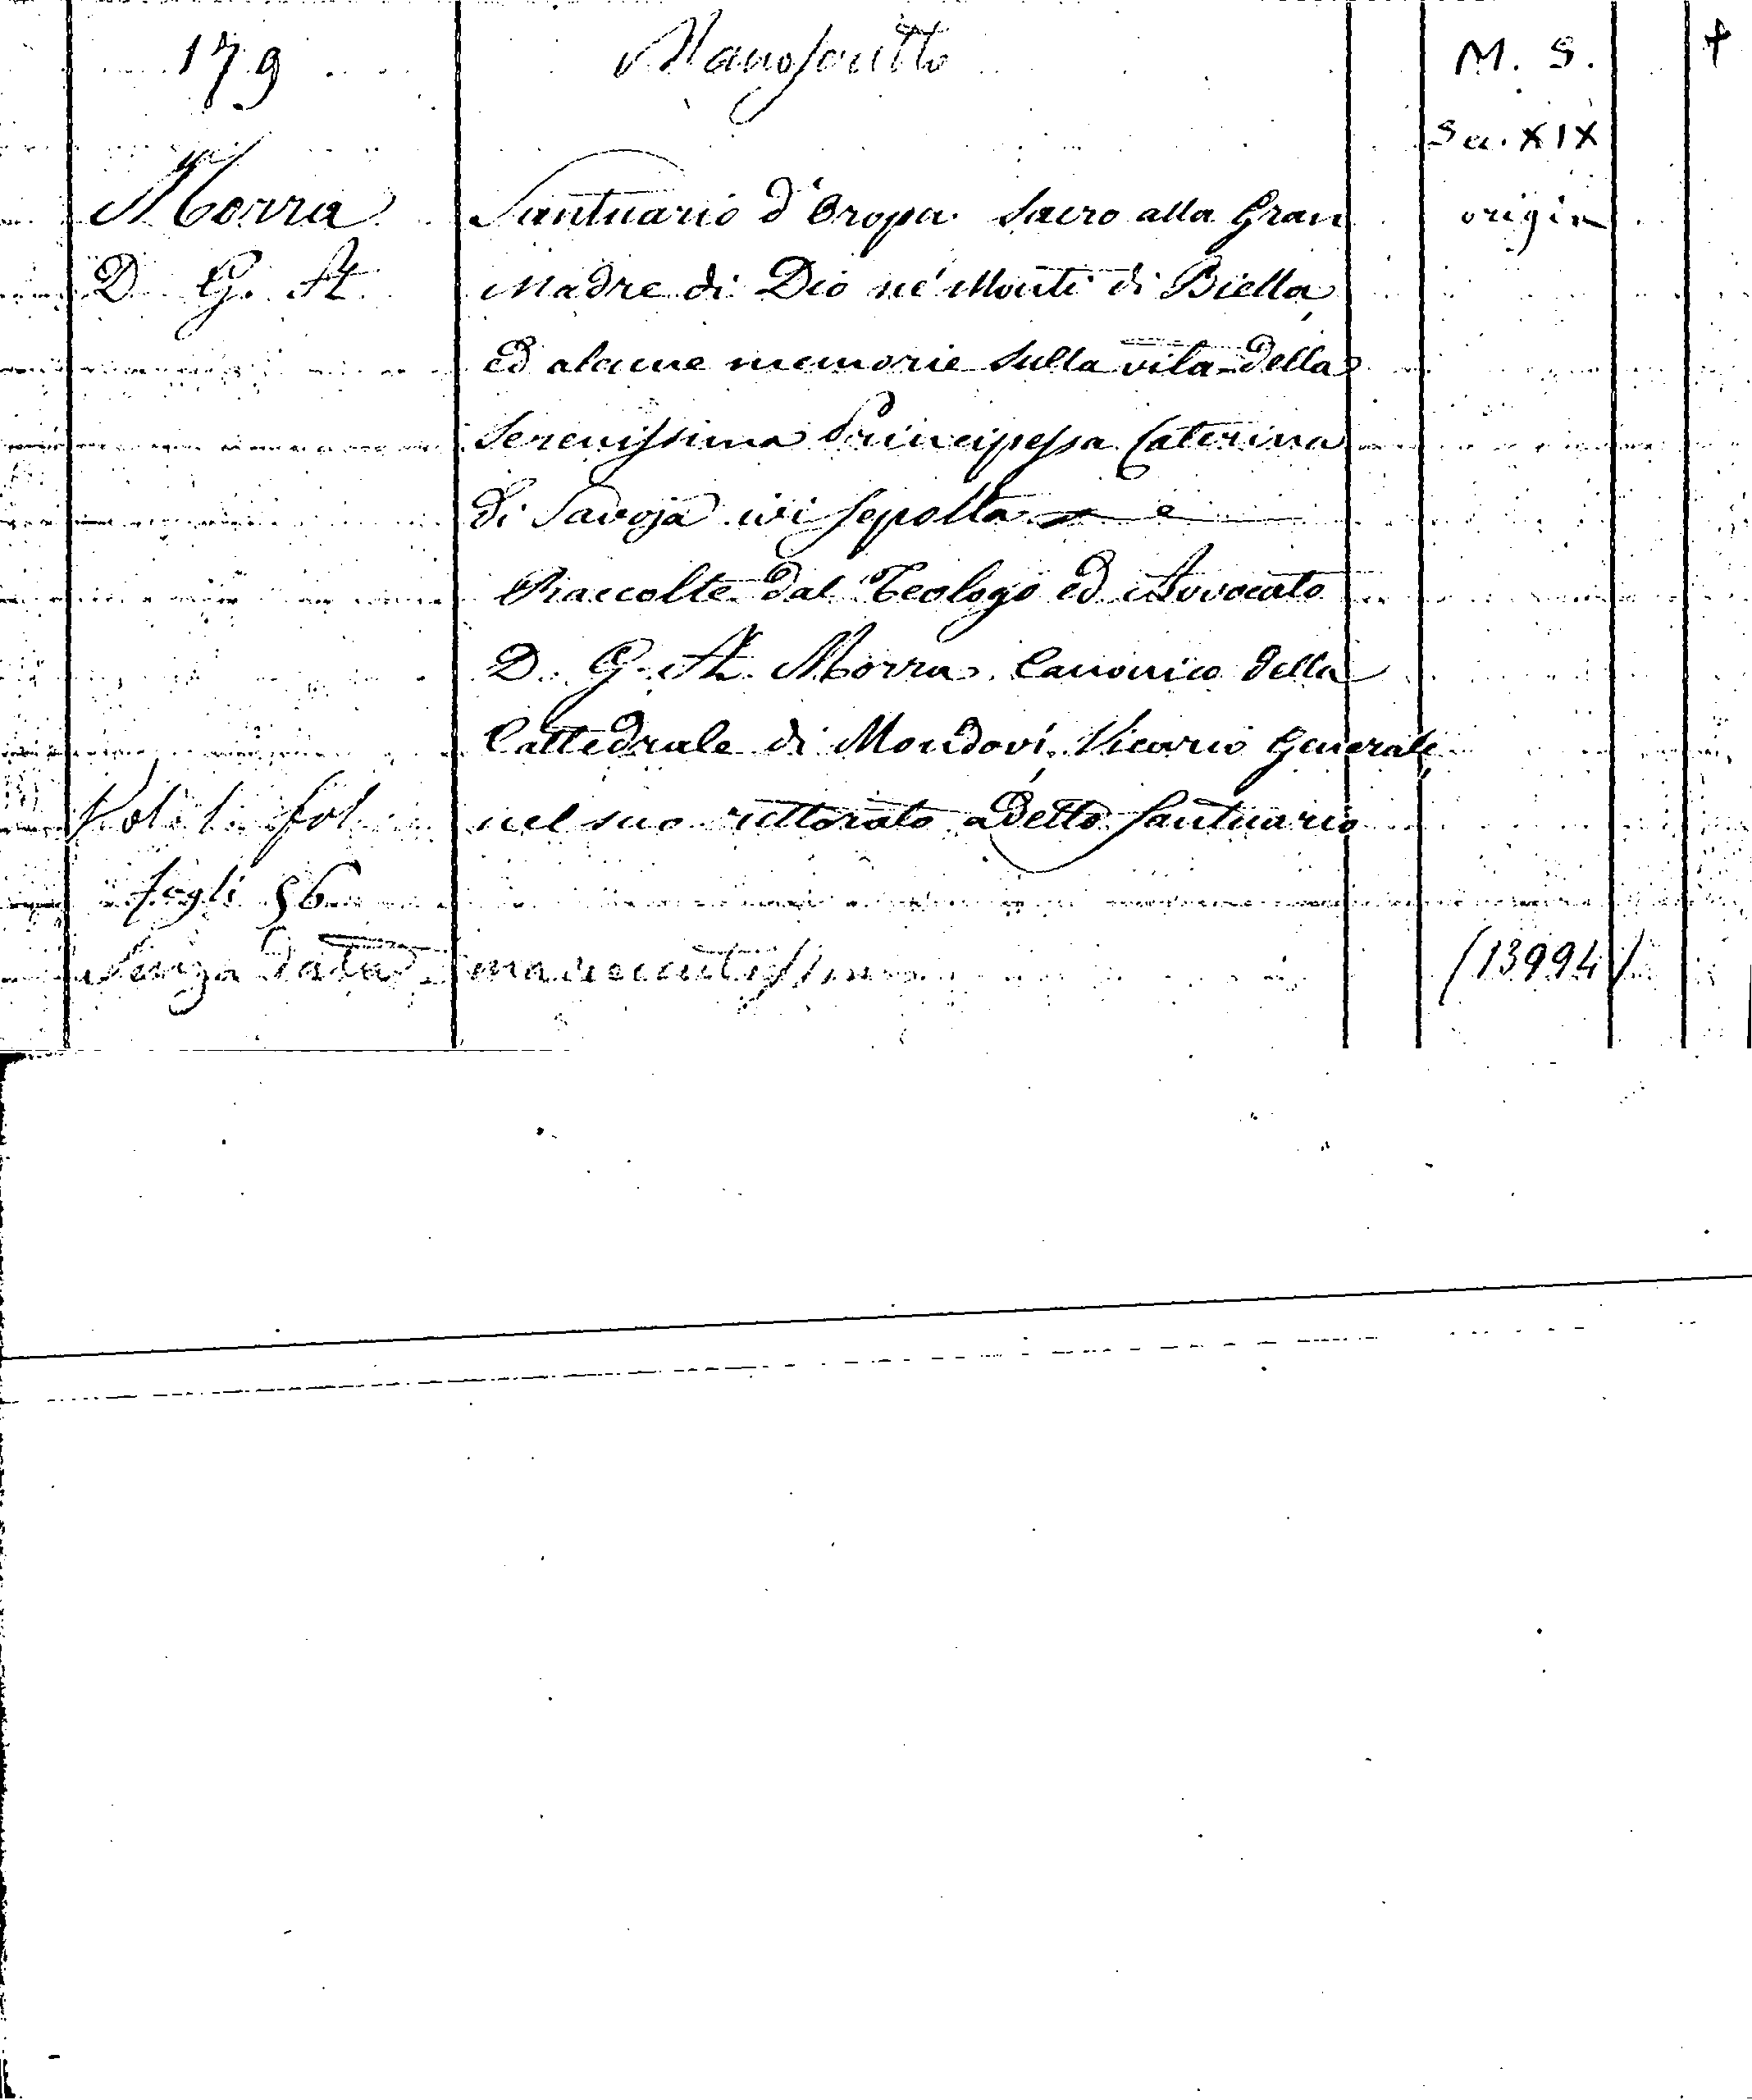 179 Manoscritto M. S. +
Sec. XIX
Morra Santuario d'Oropa Sacro alla Gran origin
D. G. A. Madre di Dio ne' Monti di Biella,
ed alcune memorie sulla vita della
Serenissima Principessa Caterina
di Savoja ivi sepolta e
Raccolte dal Teologo ed Avvocato
D. G. A. Morra Canonico della
Cattedrale di Mondovì, Vicario Generale,
Vol. 1. fol. nel suo rettorato a detto Santuario
fogli 56
Senza data ma recentissimo (13994)